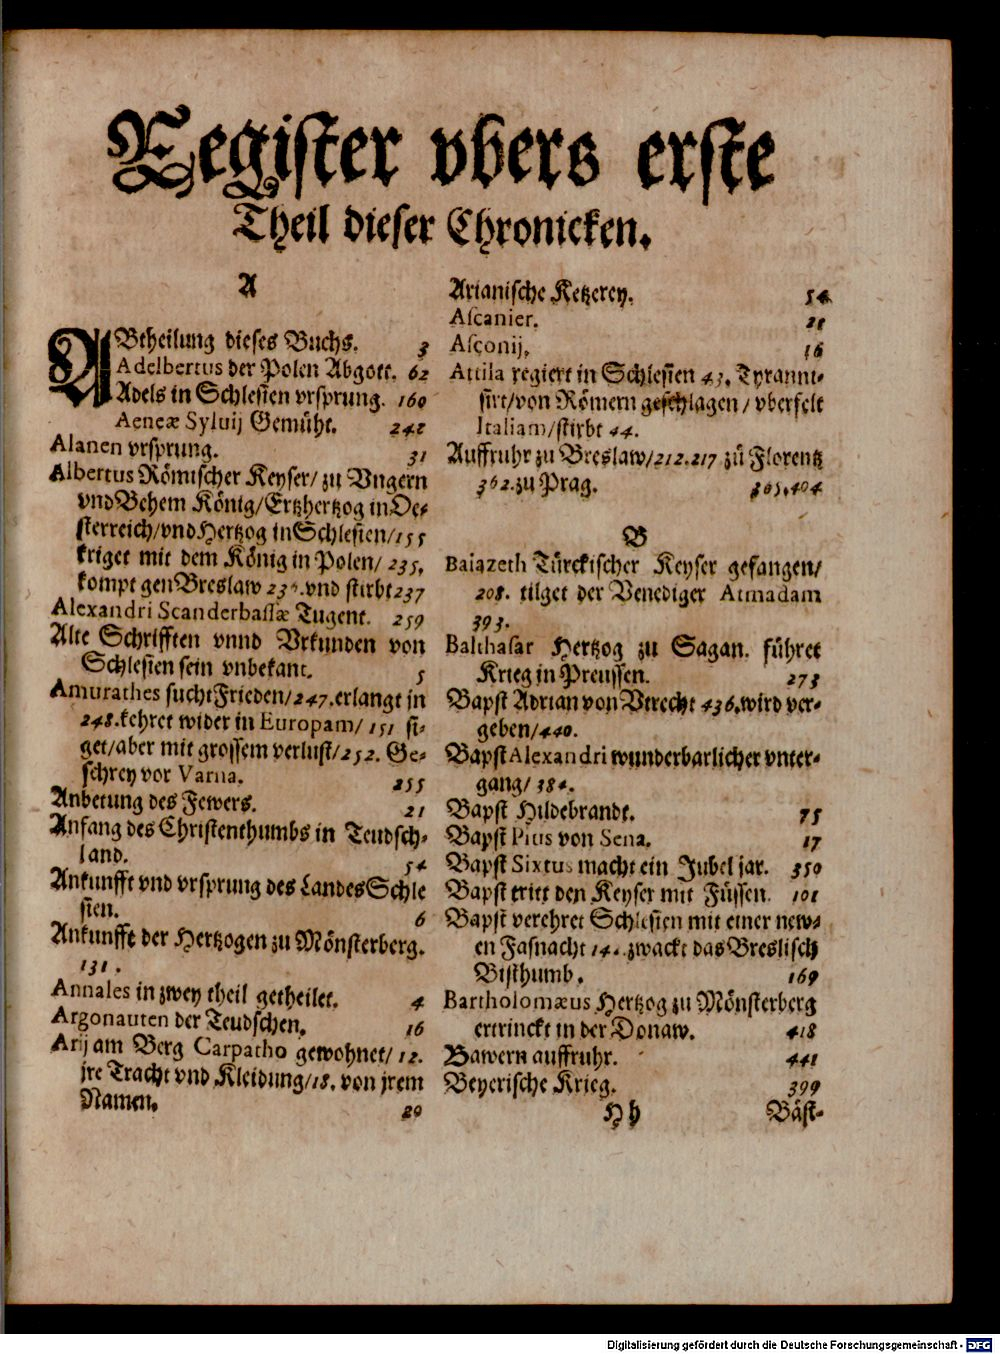 Register vbers erste
Theil dieser Chronicken.
A
ABtheilung dieses Buchs. 3
Adelbertus der Polen Abgott. 62
Adels in Schlesien vrsprung. 160
Aeneæ Syluij Gemüht. 242
Alanen vrsprung. 31
Albertus Römischer Keyser/ zu Vngern
vnd Behem König/Ertzhertzog in Oe-
sterreich/vnd Hertzog in Schlesien/155
krieget mit dem König in Polen/ 235.
kompt gen Breslaw vnd stirbt 237
Alexandri Scanderbassæ Tugent. 259
Alte Schrifften vnnd Vrkunden von
Schlesien sein vnbekant. 5
Amurathes sucht Frieden/247.erlangt jn
248.kehret wider in Europam/ 151 si-
get/aber mit grossem verlust/252. Ge-
schrey vor Varna. 255
Anbetung des Fewers. 21
Anfang des Christenthumbs in Teudsch-
land. 54
Ankunfft vnd vrsprung des Landes Schle
sien. 6
Ankunfft der Hertzogen zu Mönsterberg.
131.
Annales in zwey theil getheilet. 4
Argonauten der Teudschen. 16
Arij am Berg Carpatho gewohnet/ 12.
jre Tracht vnd Kleidung/18. von jrem
Namen. 20
Arianische Ketzerey. 54
Ascanier. 21
Asconij. 16
Attila regiert in Schlesien 43. Tyranni-
sirt/von Römern geschlagen/ vberfelt
Italiam/stirbt 44.
Auffruhr zu Breslaw/212.217 zů Florentz
362.zu Prag. 404
B
Baiazeth Türckischer Keyser gefangen/
208. tilget der Venediger Armadam
393.
Balthasar Hertzog zu Sagan. führet
Krieg in Preussen. 273
Bapst Adrian von Vtrecht 436.wird ver-
geben/440.
Bapst Alexandri wunderbarlicher vnter-
gang/
Bapst Hildebrandt. 75
Bapst Pius von Sena. 17
Bapst Sixtus macht ein Jubel jar. 350
Bapst tritt den Keyser mit Füssen. 101
Bapst verehret Schlesien mit einer new-
en Fasnacht zwackt das Breslisch
Bisthumb. 169
Bartholomæus Hertzog zu Mönsterberg
ertrinckt in der Donaw. 418
Bawern auffruhr. 441
Beyerische Krieg. 399
Hh Bäst-
Digitalisierung gefördert durch die Deutsche Forschungsgemeinschaft - DFG